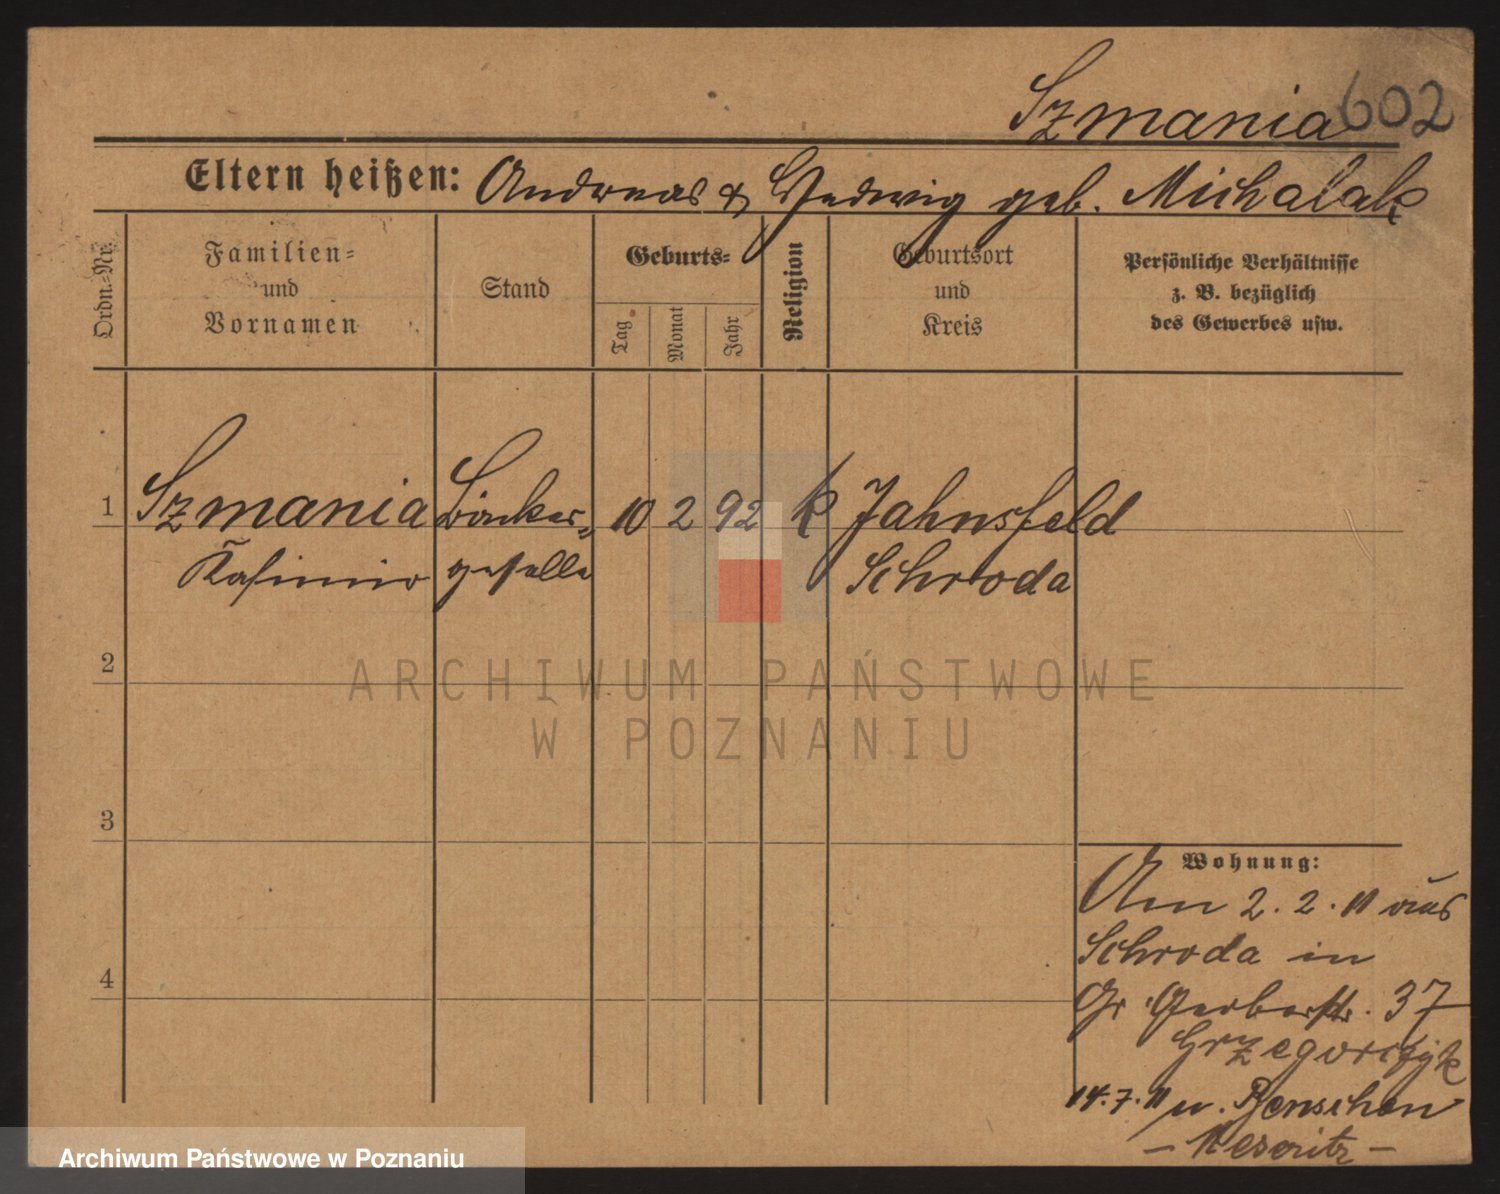 Szmania 602
Eltern heißen: Andreas & Hedwig geb. Michalak
Ordn.-Nr.
Familien=
und
Vornamen
Stand
Geburts=
Tag
Monat
Jahr
Religion
Geburtsort
und
Kreis
Persönliche Verhältnisse
z. B. bezüglich
des Gewerbes usw.
1 Szmania Bäcker= 10 2 92 k Jahnsfeld
Kasimir geselle Schroda
2
ARCHIWUM PAŃSTWOWE
W POZNANIU
3
Wohnung:
Am 2. 2. 11 aus
Schroda in
4
Gr Gerberstr. 37
Grzegorczyk
14. 7. 11 n. Benschen
- Meseritz -
Archiwum Państwowe w Poznaniu